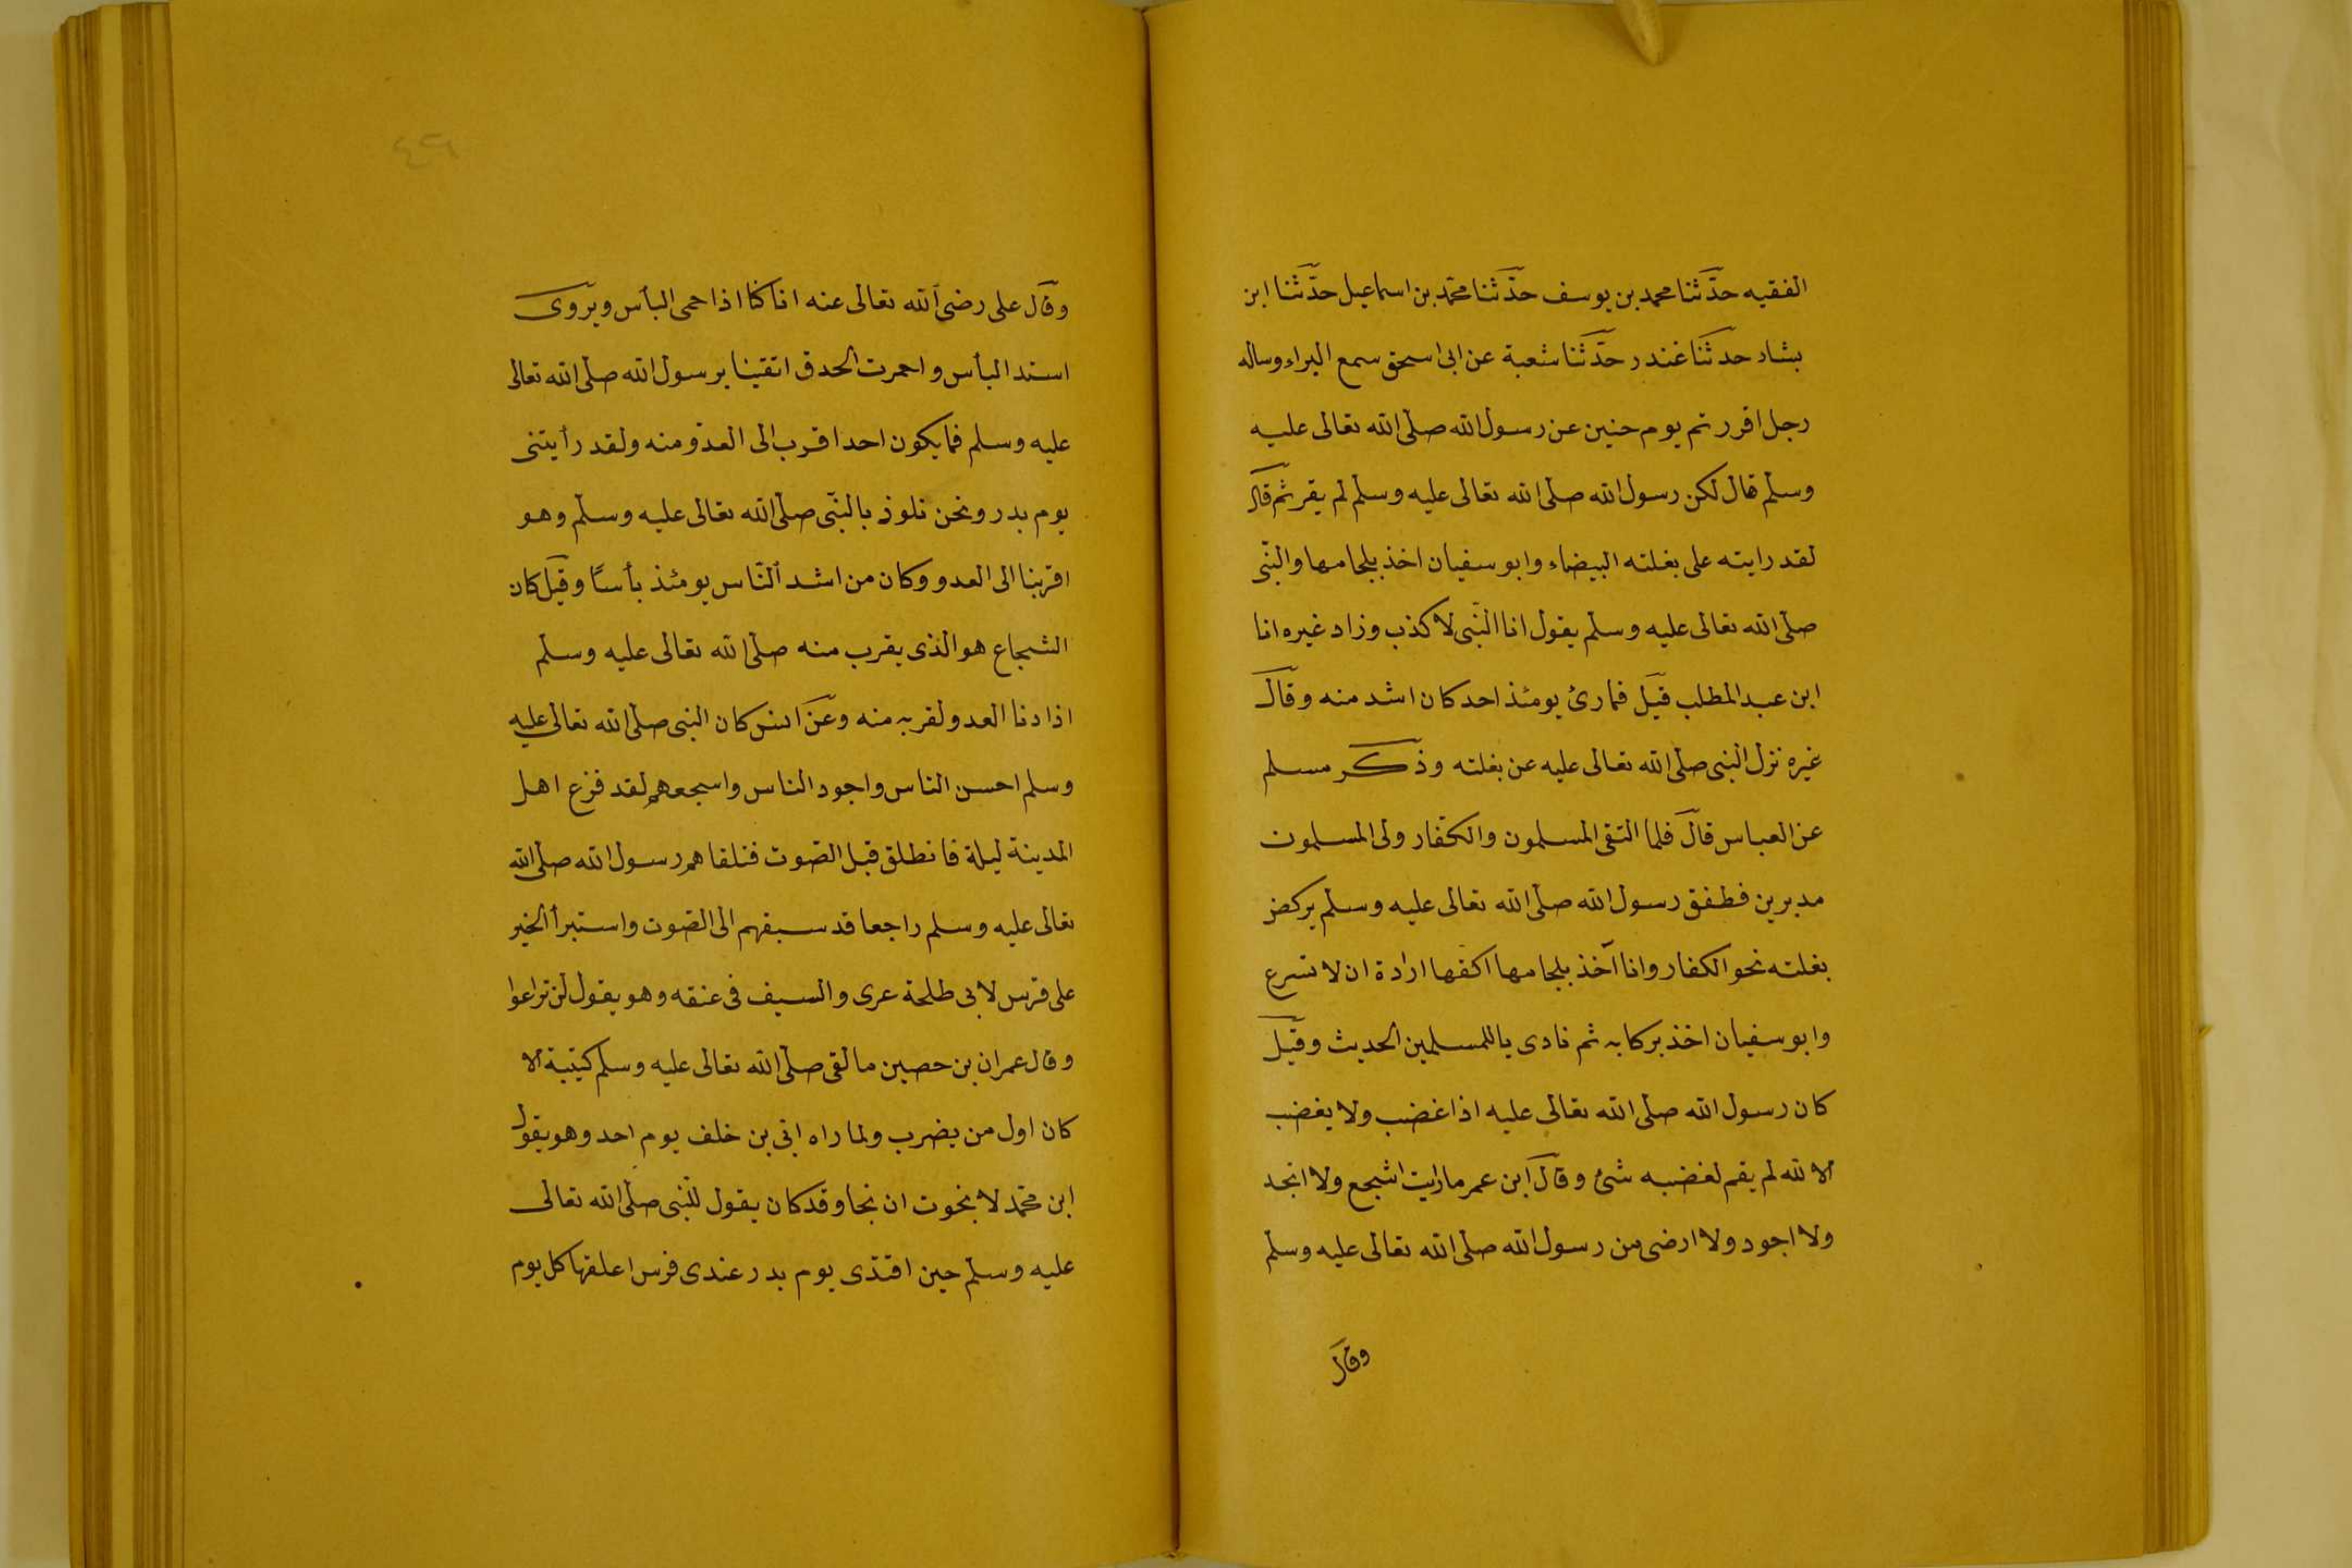 الفقيه حدّثنا محمد بن يوسف حدّثنا محمّد بن اسماعيل حدّثنا ابن
بشار حدثنا غندر حدّثنا شعبة عن ابى اسحق سمع البراء وساله
رجل افررتم يوم حنين عن رسول الله صلى الله تعالى عليه
وسلم قال لكن رسول الله صلى الله تعالى عليه وسلم لم يفر ثم قال
لقد رايته على بغلته البيضاء وابو سفيان اخذ بلجامها والنّبى
صلى الله تعالى عليه وسلم يقول انا النّبى لا كذب وزاد غيره انا
ابن عبد المطلب قيل فمارئ يومئذ احد كان اشد منه وقال
غيره نزل النبى صلى الله تعالى عليه عن بغلته وذكر مسلم
عن العباس قال فلما التقى المسلمون والكفّار ولى المسلمون
مدبرين فطفق رسول الله صلى الله تعالى عليه وسلم يركض
بغلته نحو الكفار وانا آخذ بلجامها اكفها ارادة ان لا تسرع
وابو سفيان اخذ بركابه ثم نادى ياللمسلمين الحديث وقيل
كان رسول الله صلى الله تعالى عليه اذا غضب ولا يغضب
الا لله لم يقم لغضبه شئ وقال ابن عمر مارايت اشجع ولا انجد
ولا اجود ولا ارضى من رسول الله صلى الله تعالى عليه وسلم
وقال
٤٦
وقال على رضى الله تعالى عنه اناكنّا اذا حمى البأس ويروى
استد البأس واحمرت الحدق اتقينا برسول الله صلى الله تعالى
عليه وسلم فمايكون احد اقرب الى العدو منه ولقد رأيتنى
يوم بدر ونحن نلوذ بالنّبى صلى الله تعالى عليه وسلم وهو
اقربنا الى العدو وكان من اشد النّاس يومئذ بأسًا وقيل كان
الشجاع هو الذى يقرب منه صلى الله تعالى عليه وسلم
اذا دنا العدو لقربه منه وعن انس كان النبى صلى الله تعالى عليه
وسلم احسن الناس واجود الناس واسجعهم لقد فزع اهل
المدينة ليلة فانطلق قبل الصّوت فتلقاهم رسول الله صلى الله
تعالى عليه وسلم راجعا قد سبقهم الى الصّوت واستبرأ الخبر
على فرس لابى طلحة عرى والسيف فى عنقه وهو يقول لن تراعوا
وقال عمران بن حصين مالقى صلى الله تعالى عليه وسلم كتيبة الا
كان اول من يضرب ولما راه ابى بن خلف يوم احد وهو يقول
اين محمّد لا نجوت ان نجا وقد كان يقول للنّبى صلى الله تعالى
عليه وسلم حين افتدى يوم بدر عندى فرس اعلفها كل يوم